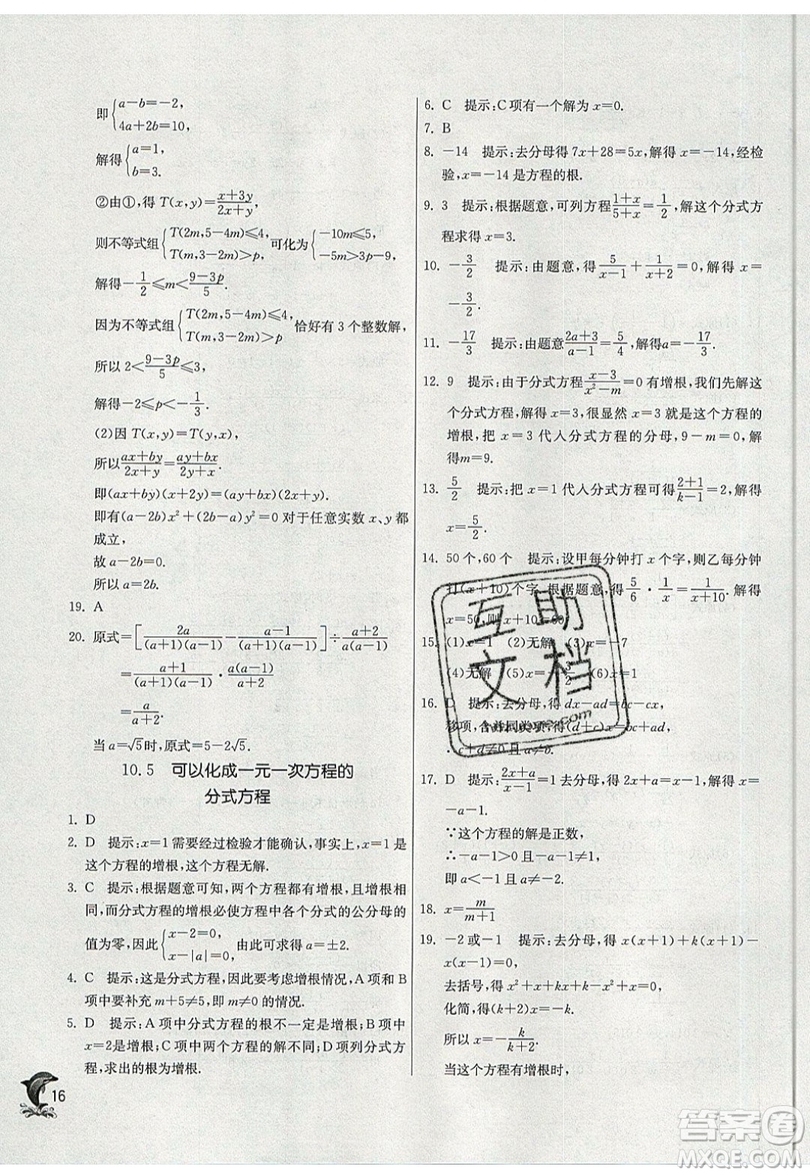 即{a-b=-2,
4a+2b=10,
解得{a=1,
b=3.
②由①,得 T(x,y)=(x+3y)/(2x+y),
则不等式组{T(2m,5-4m)≤4, T(m,3-2m)>p 可化为{-10m≤5, -5m>3p-9.
解得-1/2≤m<(9-3p)/5.
因为不等式组{T(2m,5-4m)≤4, T(m,3-2m)>p 恰好有 3 个整数解,
所以 2<(9-3p)/5≤3.
解得-2≤p<-1/3.
(2)因 T(x,y)=T(y,x),
所以(ax+by)/(2x+y)=(ay+bx)/(2y+x).
即(ax+by)(x+2y)=(ay+bx)(2x+y).
即有(a-2b)x²+(2b-a)y²=0 对于任意实数 x、y 都
成立,
故 a-2b=0.
所以 a=2b.
19. A
20. 原式=[2a/((a+1)(a-1))-(a-1)/((a+1)(a-1))]÷(a+2)/(a-1)
=(a+1)/((a+1)(a-1))·(a-1)/(a+2)
=
当 a=√5时,原式=5-2√5.
10.5 可以化成一元一次方程的
分式方程
1. D
2. D 提示:x=1 需要经过检验才能确认,事实上,x=1 是
这个方程的增根,这个方程无解.
3. C 提示:根据题意可知,两个方程都有增根,且增根相
同,而分式方程的增根必使方程中各个分式的公分母的
值为零,因此{x-2=0, x-|a|=0, 由此可求得 a=±2.
4. C 提示:这是分式方程,这里要考虑增根情况,A 项和 B
项中要补充 m+5≠5,即 m≠0 的情况.
5. D 提示:A 项中分式方程的根不一定是增根;B 项中
方程有解;C 项中两个方程的解不同;D 项列分式方
程,求出的根为增根.
16
6. C 提示:C 项有一个解为 x=0.
7. B
8. -14 提示:去分母得 7x+28=5x,解得 x=-14,经检
验,x=-14 是方程的根.
9. 3 提示:根据题意,可列方程(1+x)/(5+x)=1/2,解这个分式方
程求得 x=3.
10. -3/2 提示:由题意,得 5/(x-1)+1/(x+2)=0,解得 x=
-3/2.
11. -17/3 提示:由题意(2a+3)/(a-1)=5/4,解得 a=-17/3.
12. 9 提示:由于分式方程(x-3)/(x²-m)=0 有增根,我们先解这
个分式方程,解得 x=3,很显然 x=3 就是这个方程的
增根,把 x=3 代入分式方程的分母,9-m=0,解
得m=9.
13. 5/2 提示:把 x=1 代入分式方程可得(2+1)/(k-1)=2,解得
x=5/2.
14. 50 个,60 个 提示:设甲每分钟打 x 个字,则乙每分钟
打(x+10)个字,根据题意,得 5/6·1/x=1/(x+10).解得
x=50,所以x+10=60.
15. (1)x=1 (2)无解 (3)x=-7
(4)无解 (5)无解 (6)x=0
16. C 提示:去分母,得 dx-ad=bc-cx,
移项,合并同类项,得(d+c)x=bc+ad,
∵c+d≠0,
17. D 提示:(2x+a)/(x-1)=1.
x=-a-1.
∵这个方程的解是正数,
∴-a-1>0 且-a-1≠1,
即 a<-1 且 a≠-2.
18. x=m/(m+1)
19. -2 或-1 提示:去分母,得 x(x+1)+k(x+1)-
x(x-1)=0,
去括号,得 x²+x+kx+k-x²+x=0,
化简,得(k+2)x=-k.
所以 x=-k/(k+2).
当这个方程有增根时,
互助
文档
答案卷
MXQE.COM